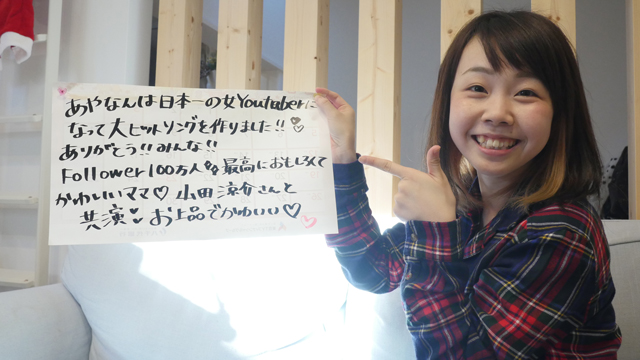 あやなんは日本一の女Youtuberに
なって大ヒットソングを作りました!!
ありがとう!!みんな!!
Follower100万人 最高におもしろくて
かわいいママ♡ 山田涼介さんと
共演♥ お上品でかわいい♡